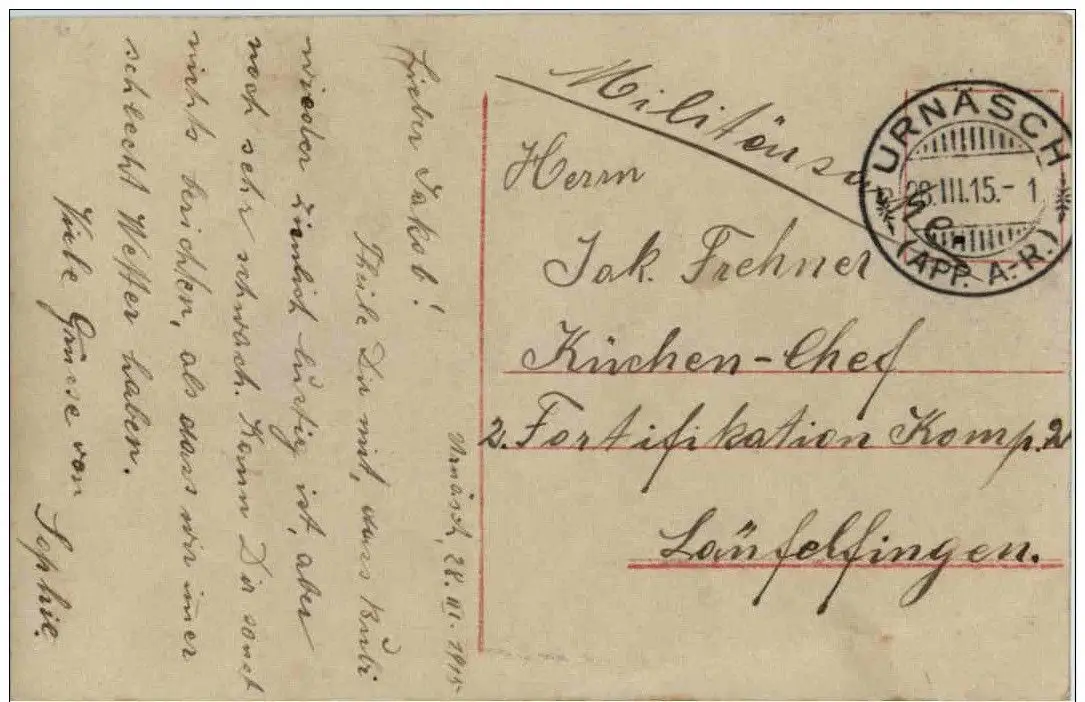 Urnäsch, 28. III. 1915
Lieber Jakob!
Theile Dir mit, dass Bubi
wieder ziemlich lustig ist, aber
noch sehr schwach. Kann Dir sonst
nichts berichten, als dass wir imer
schlecht Wetter haben.
Viele Grüsse von
Sophie.
Militärsache
Herrn
Jak. Frehner
Küchen-Chef
2. Fortifikation Komp. 2
Läufelfingen.
URNÄSCH
28.III.15.-1
(APP. A.-R.)